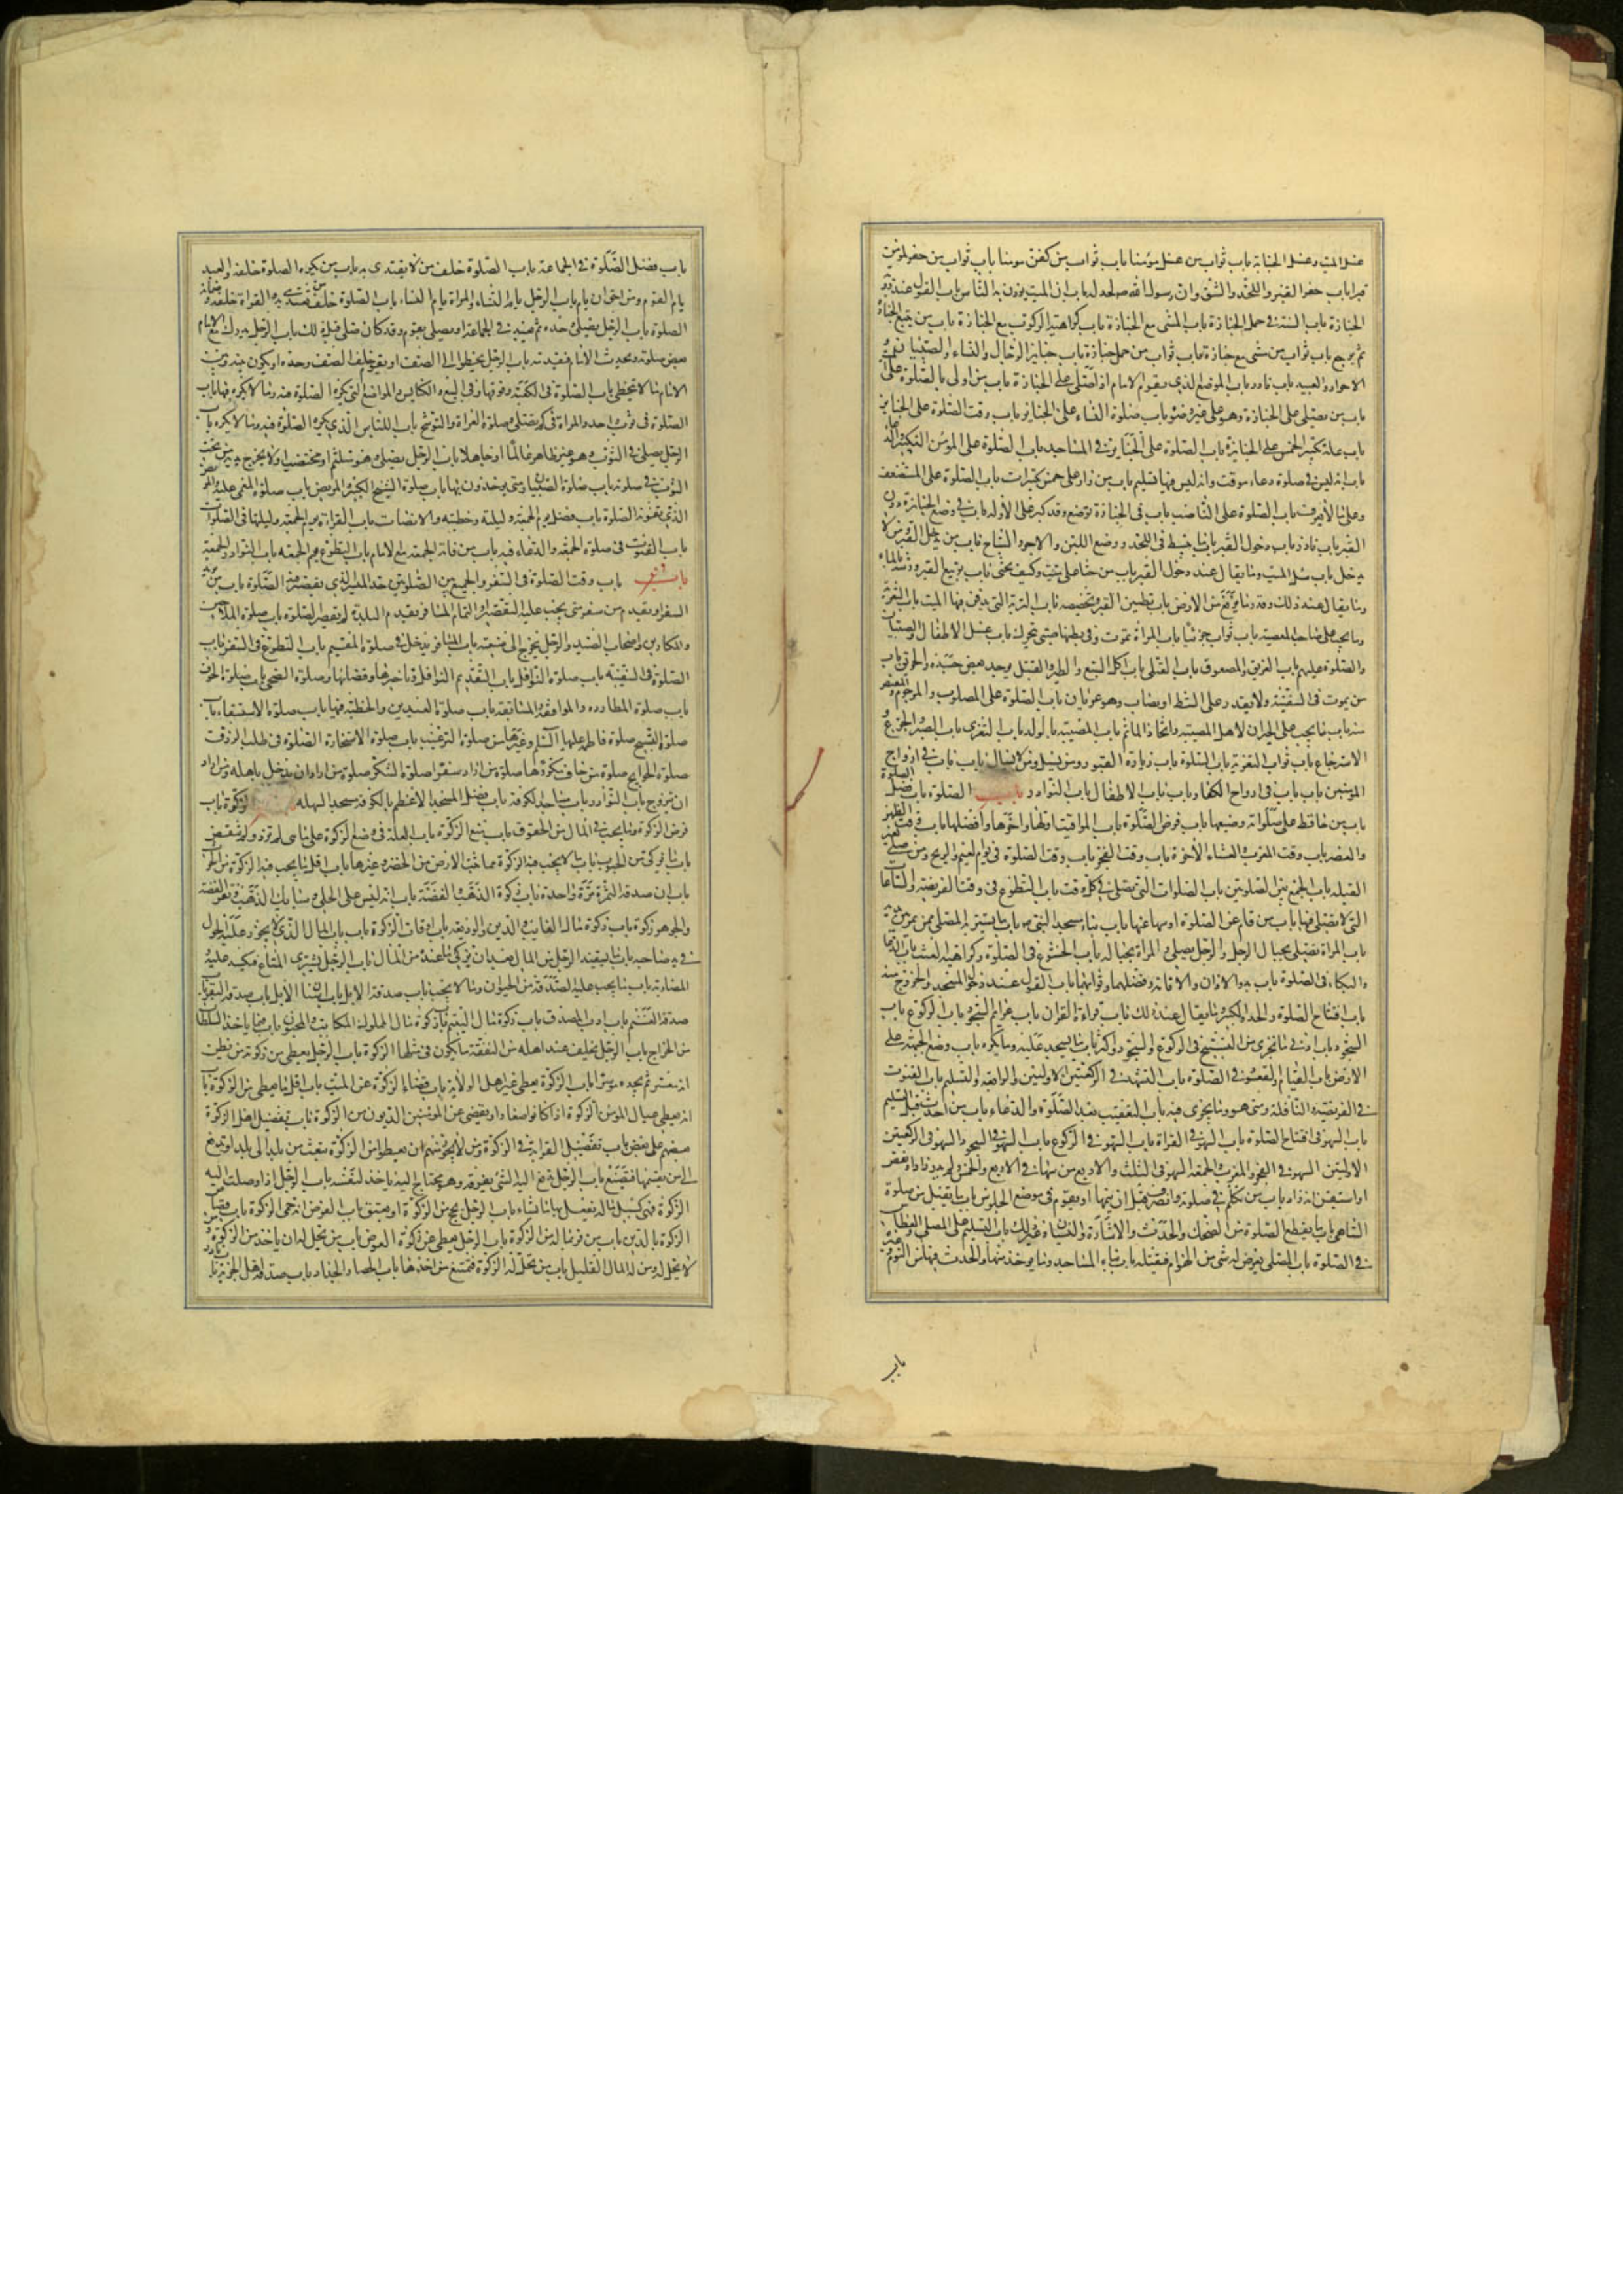 غسل الميت وغسل الجنابة باب ثواب من غسل مومنا باب ثواب من كفن مومنا باب ثواب من حفر لمؤمن
قبرا باب حفر القبر واللحد والشق وان رسول الله لحد له باب ان الميت يوذن به الناس باب القول عند
الجنازة باب السنة في حمل الجنازة باب المشي مع الجنازة باب كراهية الركوب مع الجنازة باب من يتبع الجنازة
ثم يرجع باب ثواب من مشى مع جنازة باب ثواب من حمل جنازة باب جنايز الرجال والنساء والصبيان
الاحرار والعبيد باب نادر باب الموضع الذي يقوم الامام اذا صلى على الجنازة باب من اولى بالصلوة على
باب من يصلي على الجنازة وهو على غير وضوء باب صلوة النساء على الجنايز باب وقت الصلوة على الجنايز
باب علة تكبير الخمس على الجنايز باب الصلوة على الجنايز في المساجد باب الصلوة على المومن التكبير
باب انه ليس في صلوة دعاء موقت وانه ليس فيها تسليم باب من زاد على خمس تكبيرات باب الصلوة على المستضعف
باب الصلوة على الناصب باب في الجنازة توضع وقد كبر على الاوله باب في وضع الجنازة دون
القبر باب نادر باب دخول القبر باب ما يبسط في اللحد ووضع اللبن والاجر والساج باب من يدخل القبر
يدخل باب سل الميت وما يقال عند دخول القبر باب من حثا على ميت وكيف يحثى باب تربيع القبر ورشه بالماء
وما يقال عند ذلك وقدر ما يرفع من الارض باب تطيين القبر وتجصيصه باب التربة التي يدفن فيها الميت باب التعزية
وما يجب على صاحب المصيبة باب ثواب من عزى باب المراة تموت وفي بطنها صبي يتحرك باب غسل الاطفال والصبيان
والصلوة عليهم باب الغريق والمصعوق باب القتلى باب اكيل السبع والطير والقتيل يوجد بعض جسده والحريق باب
من يموت في السفينة ولا يقدر على الشط او يصاب وهو عريان باب الصلوة على المصلوب والمرجوم والمقتص
منه باب ما يجب على الجيران لاهل المصيبة واتخاذ الماتم باب المصيبة بالولد باب التعزي باب الصبر والجزع
الاسترجاع باب ثواب التعزية باب السلوة باب زيارة القبور باب في ارواح
المومنين باب في ارواح الكفار باب الاطفال باب النوادر الصلوة باب فضل الصلوة
باب من حافظ على صلواته وضيعها باب فرض الصلوة باب المواقيت اولها واخرها وافضلها باب وقت الظهر
والعصر باب وقت المغرب والعشاء الاخرة باب وقت الفجر باب وقت الصلوة في يوم الغيم والريح ومن صلى
القبله باب الجمع بين الصلوتين باب الصلوات التي تصلى في كل وقت باب التطوع في وقت الفريضة والساعات
التي لا يصلى فيها باب من نام عن الصلوة او سها عنها باب بناء مسجد النبي باب ما يستتر به المصلي ممن يمر
باب المراة تصلي بحيال الرجل والرجل يصلي والمراة بحياله باب الخشوع في الصلوة وكراهية العبث باب
والبكاء في الصلوة باب بدو الاذان والاقامة وفضلهما وثوابهما باب القول عند دخول المسجد والخروج منه
باب افتتاح الصلوة والحد في التكبير وما يقال عند ذلك باب قراءة القران باب عزايم السجود باب الركوع باب
السجود باب ادنى ما يجزي من التسبيح في الركوع والسجود واكثره باب ما يسجد عليه وما يكره باب وضع الجبهة على
الارض باب القيام والقعود في الصلوة باب التشهد في الركعتين الاولتين والرابعة والتسليم باب القنوت
في الفريضة والنافلة ومتى هو وما يجزي فيه باب التعقيب بعد الصلوة والدعاء باب من احدث قبل التسليم
باب السهو في افتتاح الصلوة باب السهو في القراة باب السهو في الركوع باب السهو في السجود باب السهو في الركعتين
الاولتين السهو في الفجر والمغرب والجمعة السهو في الثلث والاربع من سها في الاربع والخمس ولم يدر زاد او نقص
او استيقن انه زاد باب من تكلم في صلوته وانصرف قبل ان يتمها او يقوم في موضع الجلوس باب ما يقبل من صلوة
الساهي باب ما يقطع الصلوة من الضحك والحدث والاشارة والنسيان وغير ذلك باب التسليم على المصلي والعطاس
في الصلوة باب المصلي يعرض له شي من الهوام فيقتله باب بناء المساجد وما يوخذ منها والحدث فيها من النوم وغيره
باب
باب فضل الصلوة في الجماعة باب الصلوة خلف من لا يقتدى به باب من تكره الصلوة خلفه والعبد
يام القوم ومن احق ان يام باب الرجل يام النساء والمراة يام النساء باب الصلوة خلف من يقتدى به والقراة خلفه وضمانه
الصلوة باب الرجل يصلي وحده ثم يعيد في الجماعة او يصلي بقوم وقد كان صلى قبل ذلك باب الرجل يدرك مع الامام
بعض صلوته ويحدث الامام فيقدمه باب الرجل يخطو الى الصف او يقوم خلف الصف وحده او يكون بينه وبين
الامام ما لا يتخطى باب الصلوة في الكعبة وفوقها وفي البيع والكنايس والمواضع التي تكره الصلوة فيها باب
الصلوة في ثوب واحد والمراة في كم تصلي وصلوة العراة والتوشح باب اللباس الذي يكره الصلوة فيه وما لا يكره باب
الرجل يصلي في الثوب وهو غير طاهر عالما او جاهلا باب الرجل يصلي وهو متلثم او مختضب او لا يخرج يديه من تحت
الثوب في صلوته باب صلوة الصبيان ومتى يوخذون بها باب صلوة الشيخ الكبير والمريض باب صلوة المغمى عليه والمريض
الذي تفوته الصلوة باب فضل يوم الجمعة وليلته وخطبته والانصات باب القراءة يوم الجمعة وليلتها في الصلوات
باب القنوت في صلوة الجمعة والدعاء فيه باب من فاتته الجمعة مع الامام باب التطوع يوم الجمعه باب النوادر والجمعة
باب وقت الصلوة في السفر والجمع بين الصلوتين حد المسير الذي يقصر فيه الصلوة باب من يريد
السفر او يقدم من سفر متى يجب عليه التقصير او التمام المسافر يقدم البلدة لم يقصر الصلوة باب صلوة الملاحين
والمكارين واصحاب الصيد والرجل يخرج الى ضيعته باب المسافر يدخل في صلوة المقيم باب التطوع في السفر باب
الصلوة في السفينة باب صلوة النوافل باب التقديم النوافل وتاخيرها وقضائها وصلوة الضحى باب صلوة الخوف
باب صلوة المطاردة والمواقفة والمسايفة باب صلوة العيدين والخطبة فيها باب صلوة الاستسقاء باب
صلوة التسبيح صلوة فاطمة عليها السلم وغيرها من صلوة الترغيب باب صلوة الاستخارة الصلوة في طلب الرزق
صلوة الحوايج صلوة من خاف مكروها صلوة من اراد سفرا صلوة الشكر صلوة من اراد ان يدخل باهله ومن اراد
ان يتزوج باب النوادر باب مساجد الكوفة باب فضل المسجد الاعظم بالكوفة مسجد السهلة الزكوة باب
فرض الزكوة وما يجب في المال من الحقوق باب منع الزكوة باب العلة في وضع الزكوة على ما هي لم تزد ولم تنقص
باب ما يزكى من الحبوب باب ما لا يجب فيه الزكوة مما تنبت الارض من الخضر وغيرها باب اقل ما يجب فيه الزكوة من الحرث
باب ان صدقة التمر مرة واحدة باب زكوة الذهب والفضة باب انه ليس على الحلي وسبايك الذهب ونقر الفضة
والجوهر زكوة باب زكوة مال الغايب والدين والوديعة باب اوقات الزكوة باب باب المال الذي لا يحول عليه الحول
في يد صاحبه باب ما يستفيد الرجل من المال بعد ان يزكي ما عنده من المال باب الرجل يشتري المتاع فيكسد عليه
المضاربة باب ما يجب عليه الصدقة من الحيوان وما لا يجب باب صدقة الابل باب اسنان الابل باب صدقة البقر باب
صدقة الغنم باب ادب المصدق باب زكوة مال اليتيم باب زكوة مال المملوك والمكاتب والمجنون باب فيما ياخذ السلطان
من الخراج باب الرجل يخلف عند اهله من النفقة ما يكون في مثلها الزكوة باب الرجل يعطي من زكوته من يظن
انه معسر ثم يجده موسرا باب الزكوة يعطى غير اهل الولاية باب قضاء الزكوة عن الميت باب اقل ما يعطى من الزكوة باب
انه يعطى عيال المومن الزكوة اذا كانوا صغارا ويقضى عن المومنين الديون من الزكوة باب تفضيل اهل الزكوة
بعضهم على بعض باب تفضيل القرابة في الزكوة ومن لا يجوز منهم ان يعطوا من الزكوة تبعث من بلد الى بلد او تدفع
الى من يقسمها فتضيع باب الرجل يدفع اليه الشي يفرقه وهو يحتاج اليه ياخذ لنفسه باب الرجل اذا وصلت اليه
الزكوة فهي كسبيل ماله يفعل بها ما شاء باب الرجل يحج من الزكوة او يعتق باب القرض انه حمى الزكوة باب قصاص
الزكوة بالدين باب من فر بماله من الزكوة باب الرجل يعطي عن زكوته العوض باب من يحل له ان ياخذ من الزكوة ومن
لا يحل له ومن له المال القليل باب من تحل له الزكوة فيمتنع من اخذها باب الحصاد والجذاذ باب صدقة اهل الجزية باب